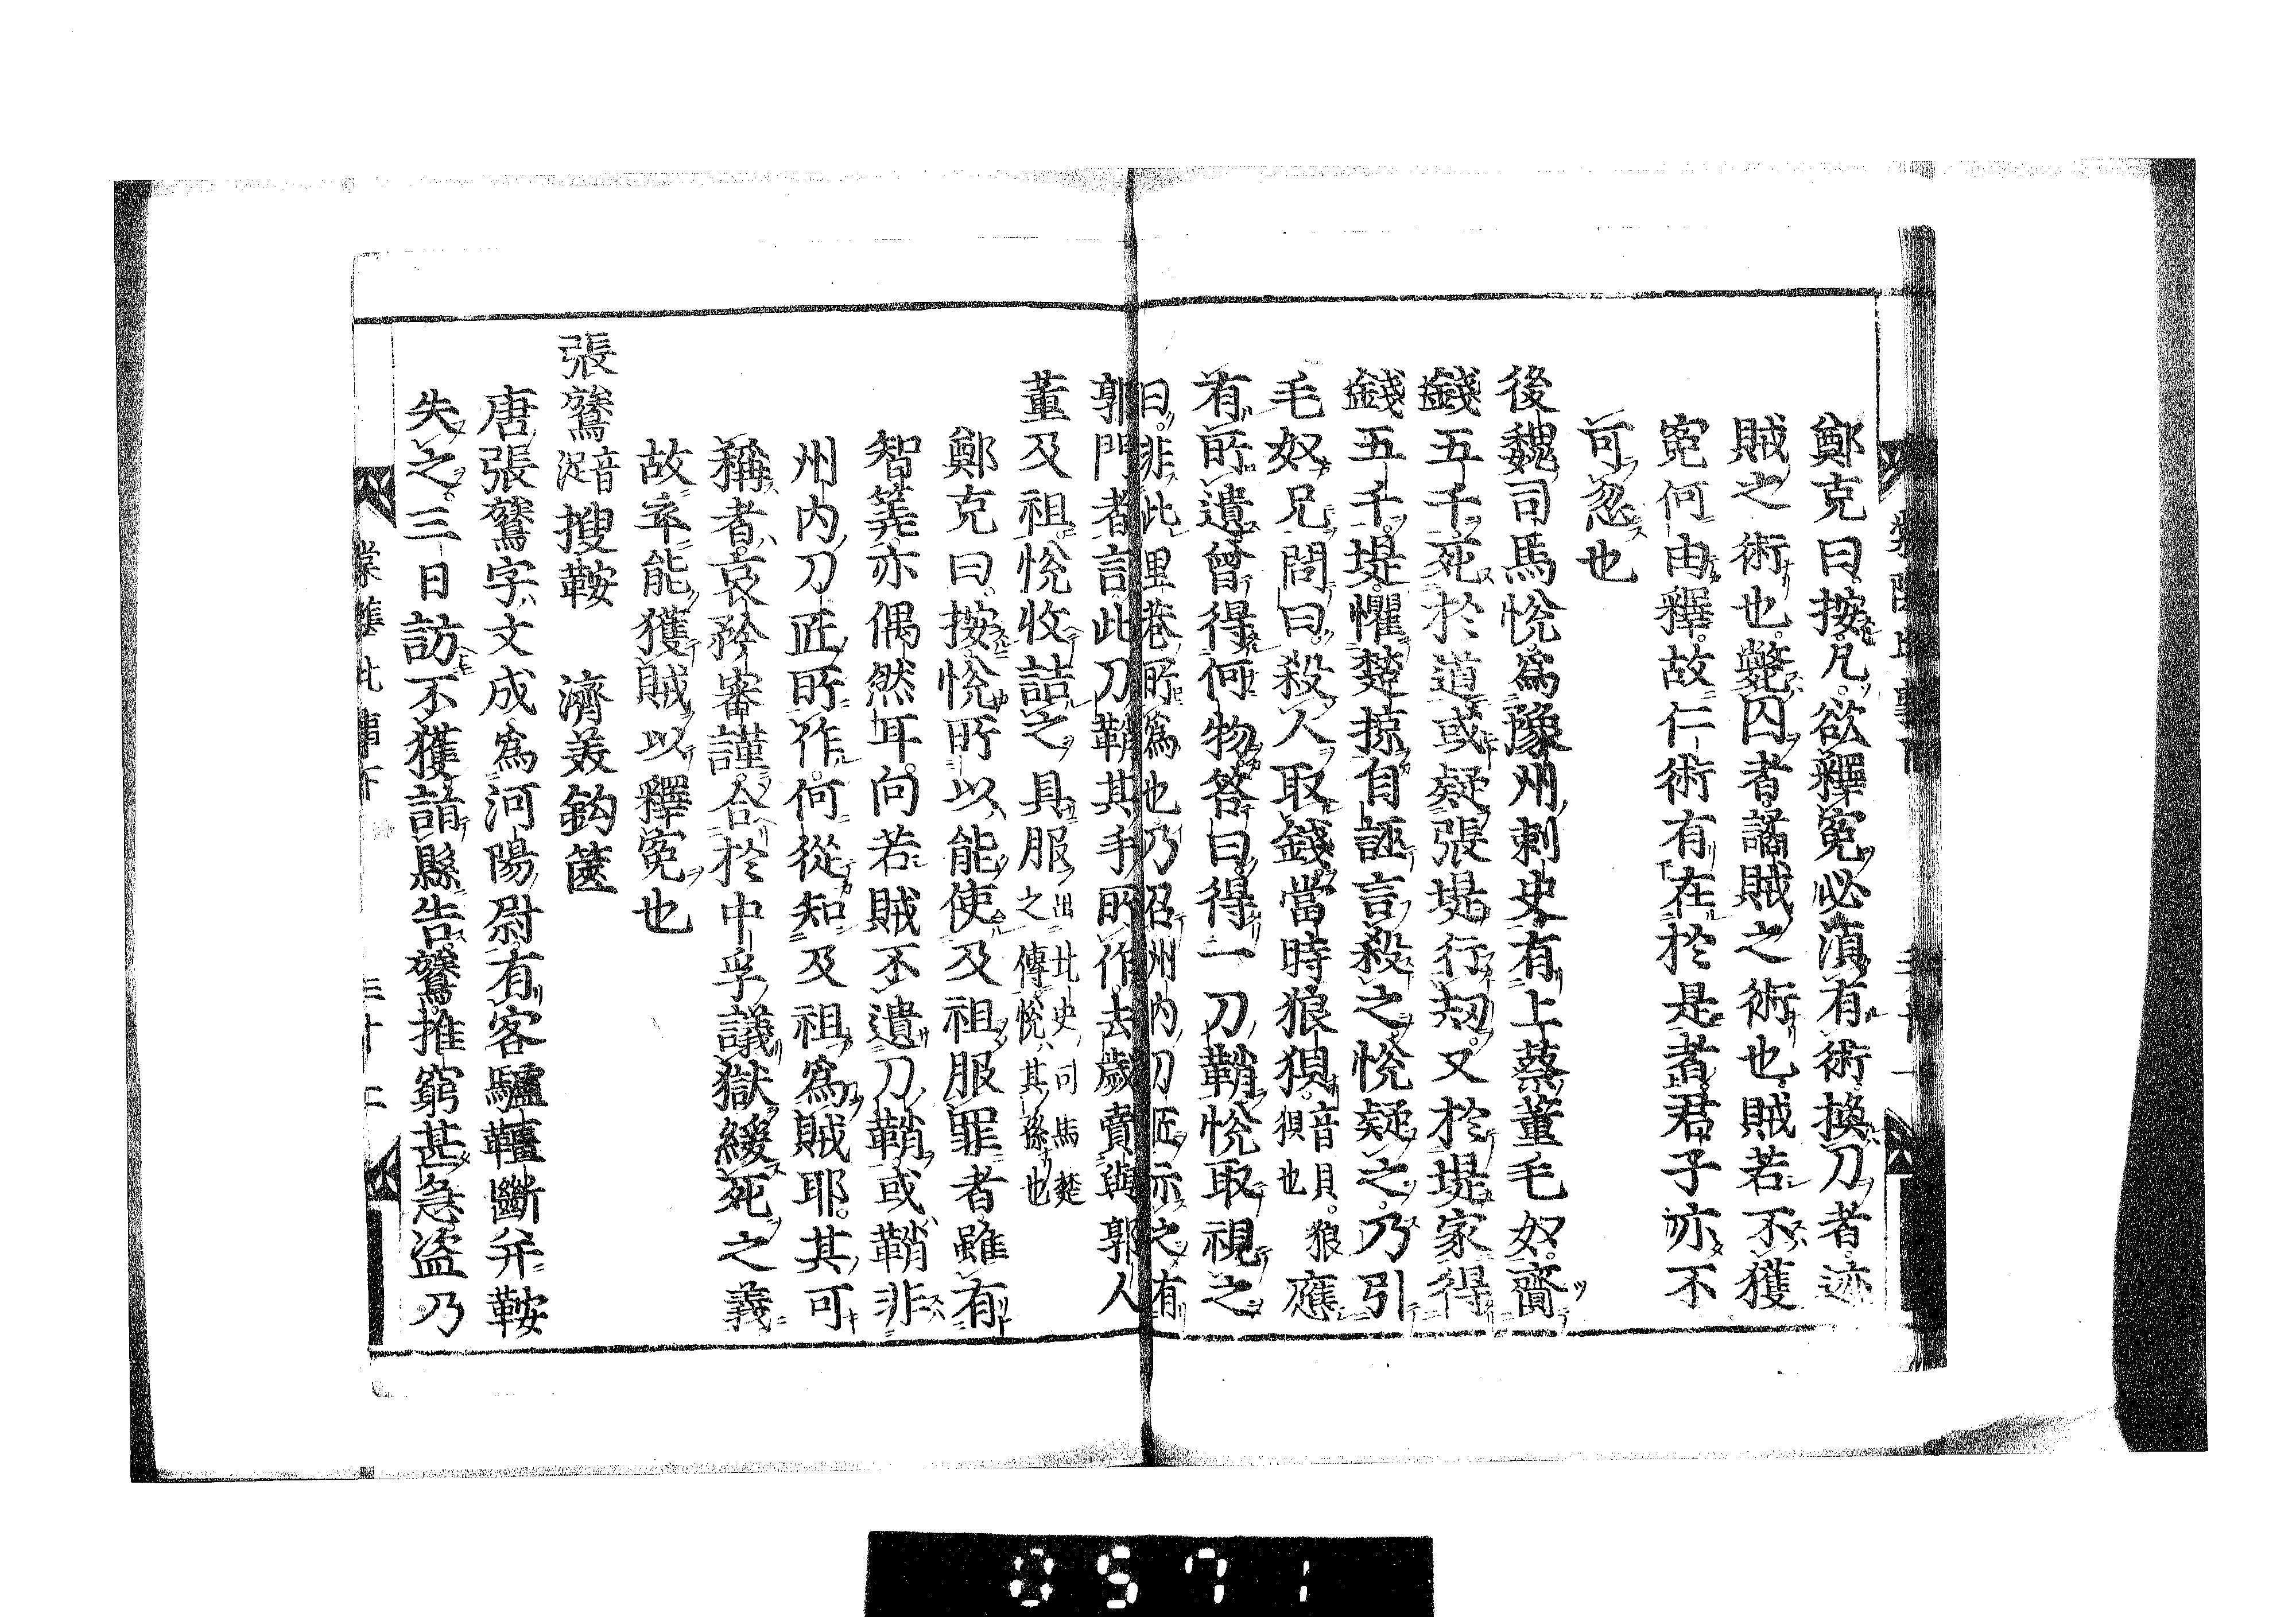 鄭克曰。按。凡。欲釋冤。必湏有術。換刀者。迹
賊之術也。斃囚者。譎賊之術也。賊若不獲
冤何由釋。故仁術有在於是者。君子亦不
可忽也
後魏司馬恱爲豫州刺史。有上蔡董毛奴。齎
錢五千。死於道。或疑張堤行刼。又於堤家得
錢五千。堤懼楚掠。自誣言殺之。恱疑之。乃引
毛奴兄問曰。殺人取錢。當時狼狽。音貝。狼狽也應
有所遺。曾得何物。答曰。得一刀鞘。恱取視之
曰。非此里巷所爲也。乃召州内刀匠示之。有
郭門者言。此刀鞘其手所作。去歲賣與郭人
董及祖。恱收詰之。具服之出北史司馬楚之傳。恱其孫也
鄭克曰。按。恱所以能使及祖服罪者。雖有
智筭。亦偶然耳。向若賊不遺刀鞘。或鞘非
州内刀匠所作。何從知及祖爲賊耶。其可
稱者。哀矜審謹。合於中孚議獄緩死之義
故卒能獲賊以釋冤也
張鷟音浞搜鞍　濟美鈎篋
唐張鷟字文成。爲河陽尉。有客驢韁斷。并鞍
失之。三日訪不獲。詣縣告。鷟推窮甚急。盜乃
0571